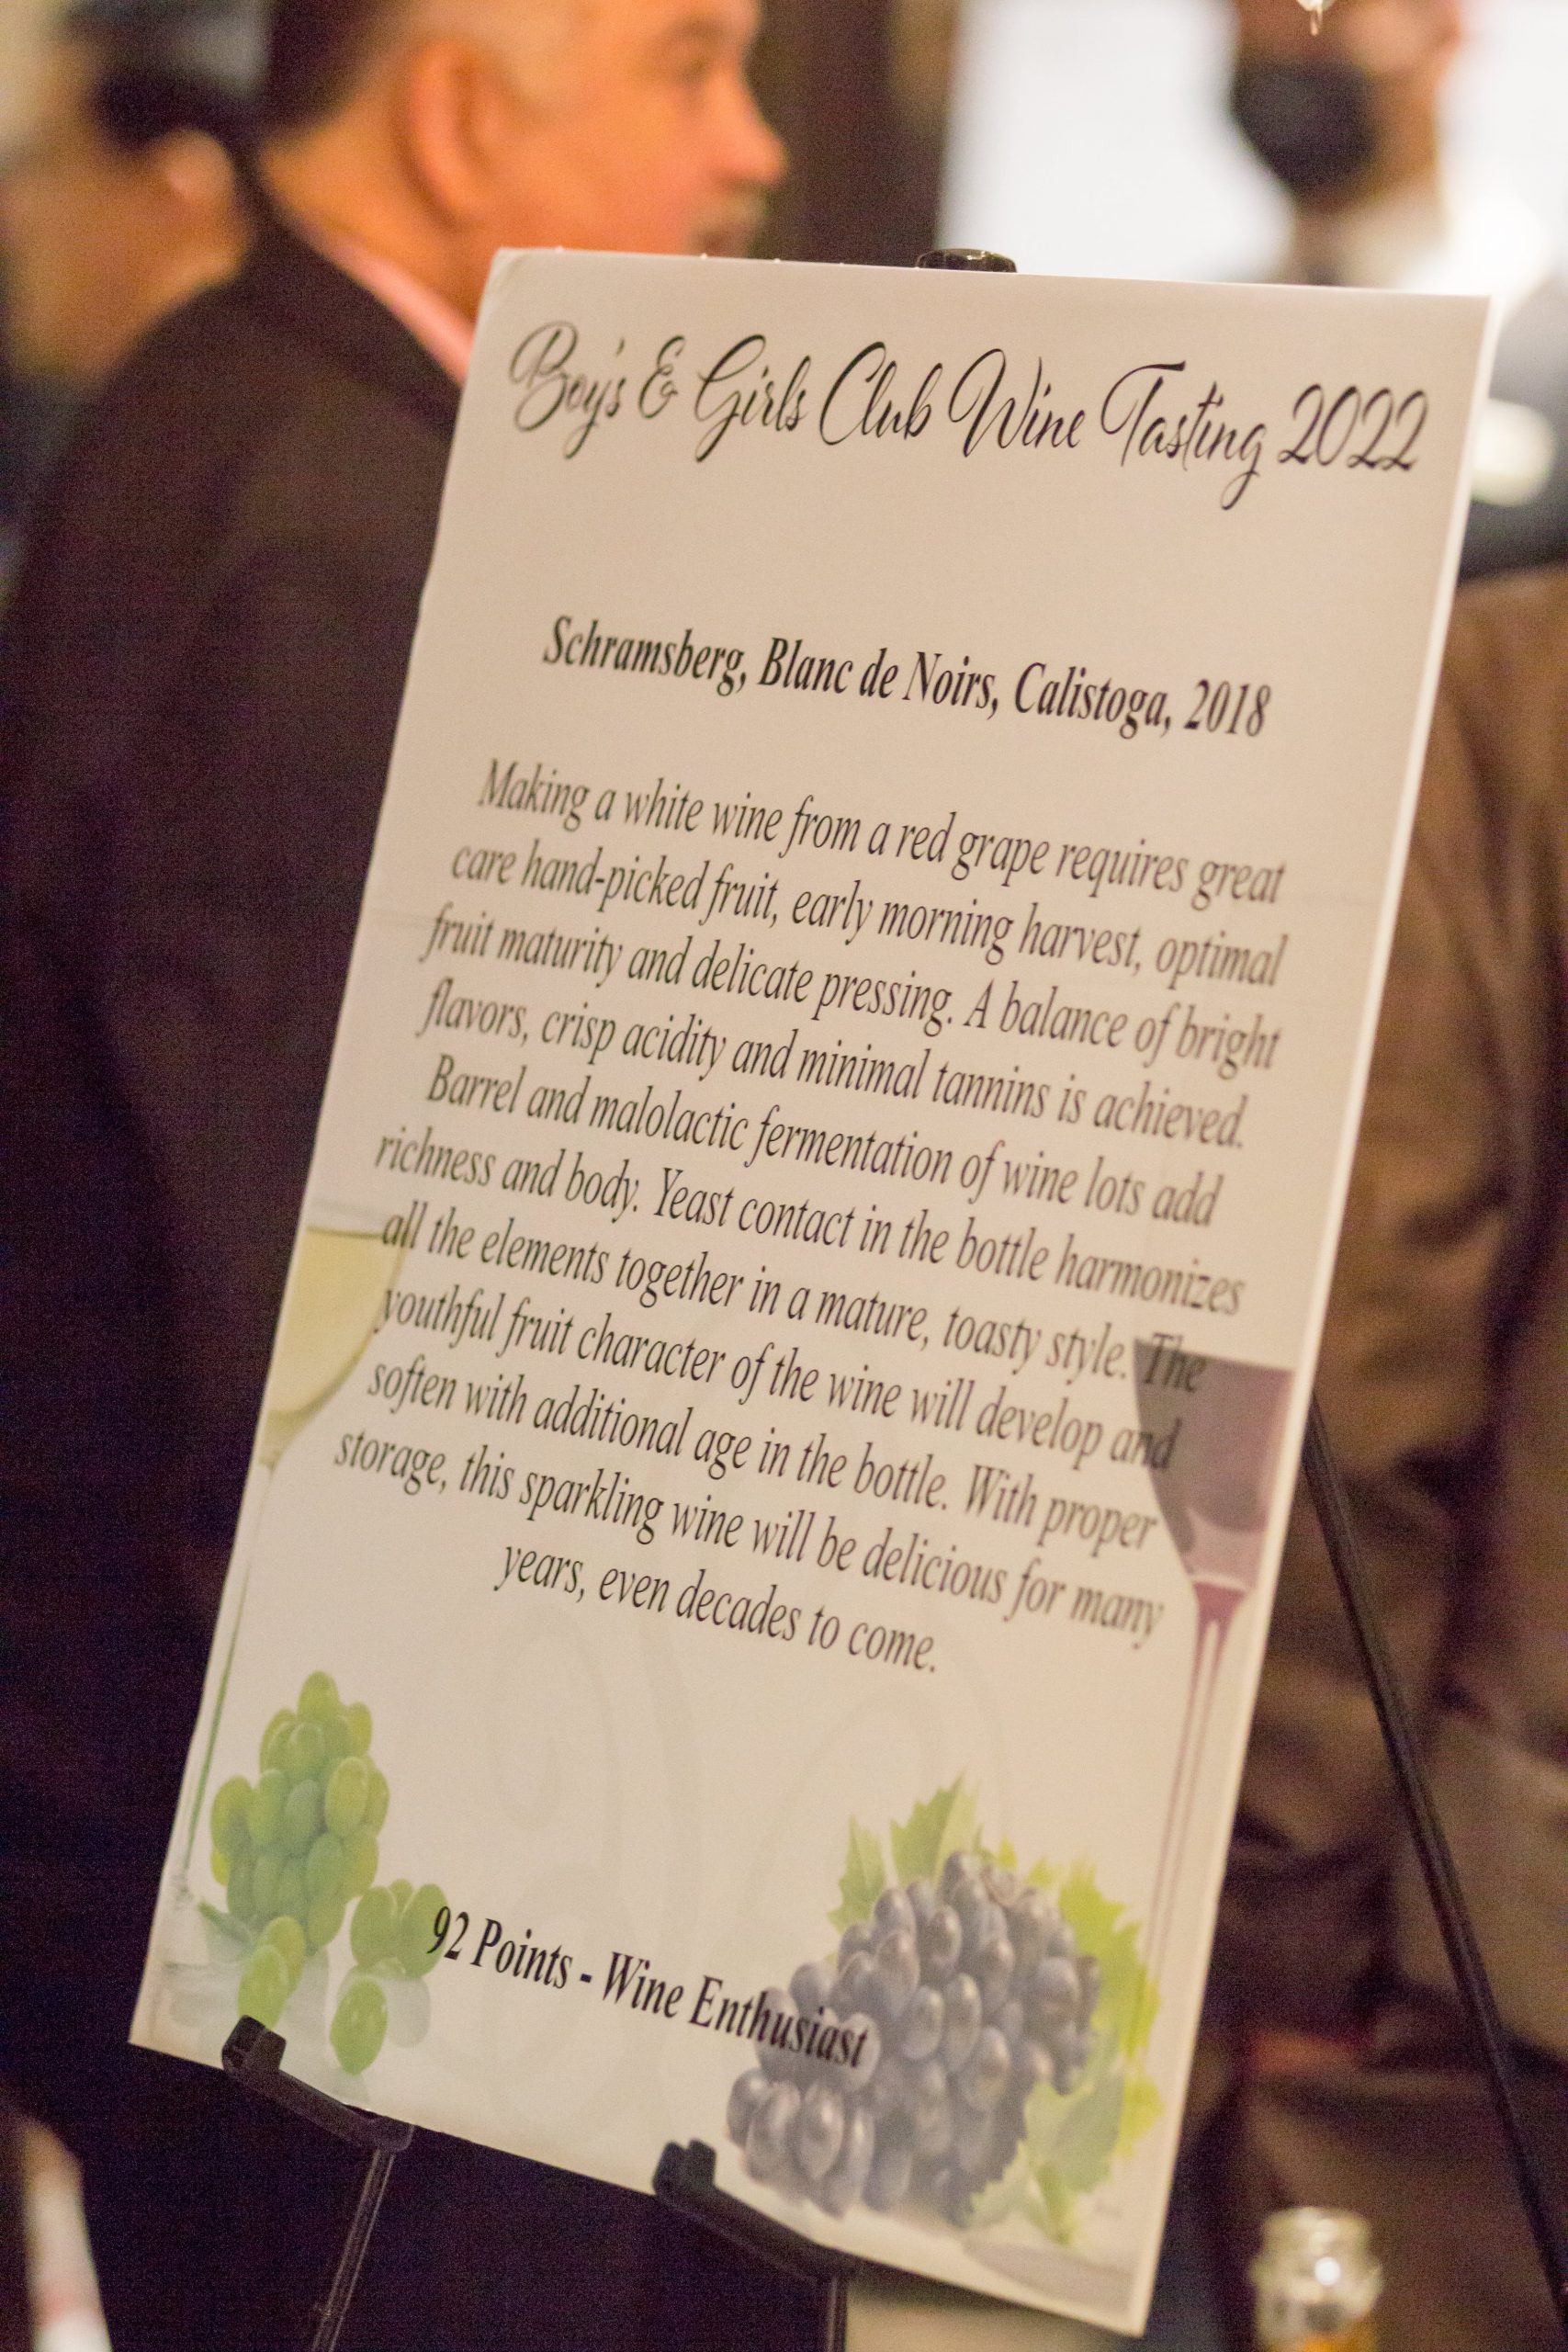 Boy's & Girls Club Wine Tasting 2022
Schramsberg, Blanc de Noirs, Calistoga, 2018
Making a white wine from a red grape requires great
care hand-picked fruit, early morning harvest, optimal
fruit maturity and delicate pressing. A balance of bright
flavors, crisp acidity and minimal tannins is achieved.
Barrel and malolactic fermentation of wine lots add
richness and body. Yeast contact in the bottle harmonizes
all the elements together in a mature, toasty style. The
youthful fruit character of the wine will develop and
soften with additional age in the bottle. With proper
storage, this sparkling wine will be delicious for many
years, even decades to come.
92 Points - Wine Enthusiast